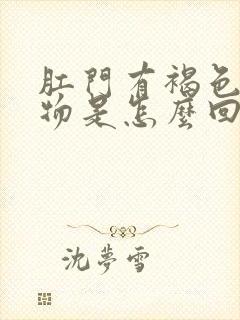 肛門有褐色
物是怎麼回
沈夢雪